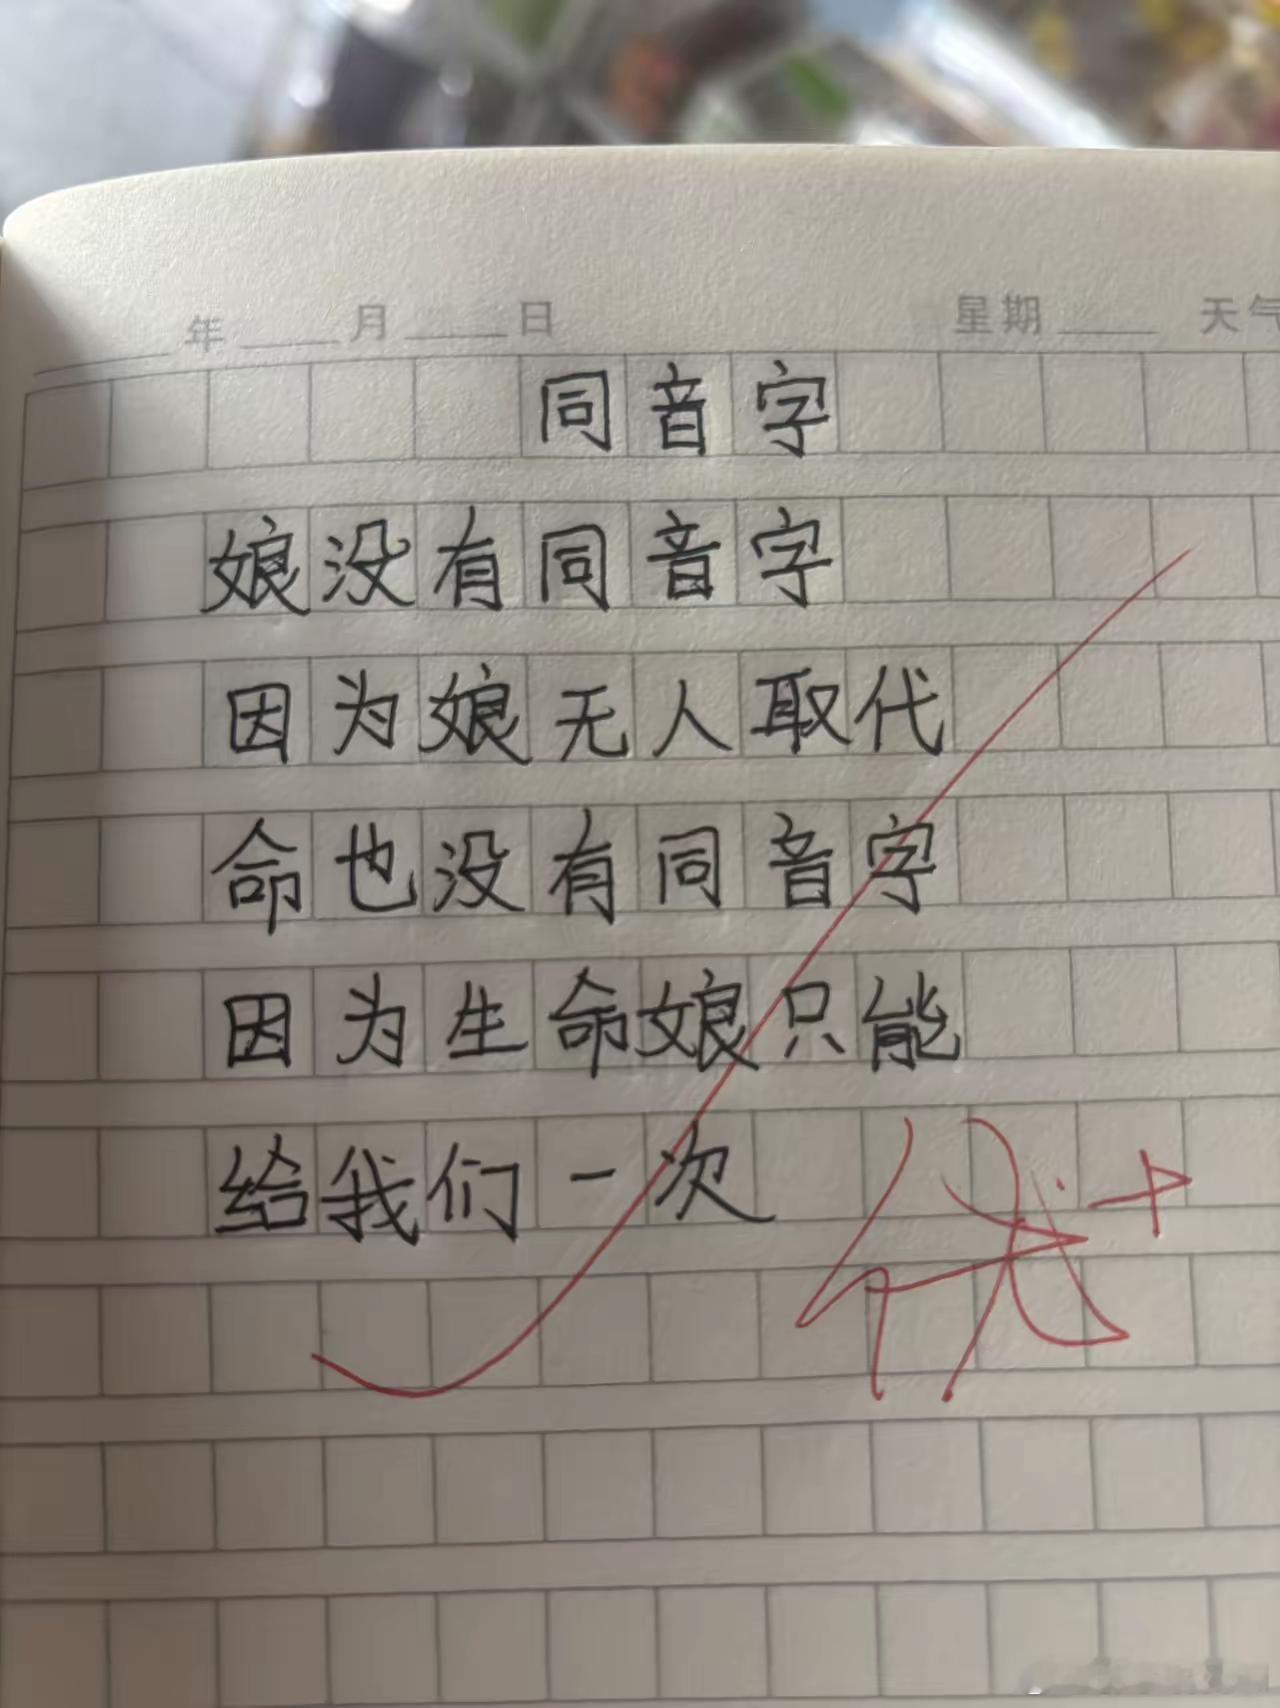 年 月 日 星期 天气
同音字
娘没有同音字
因为娘无人取代
命也没有同音字
因为生命娘只能
给我们一次
优+